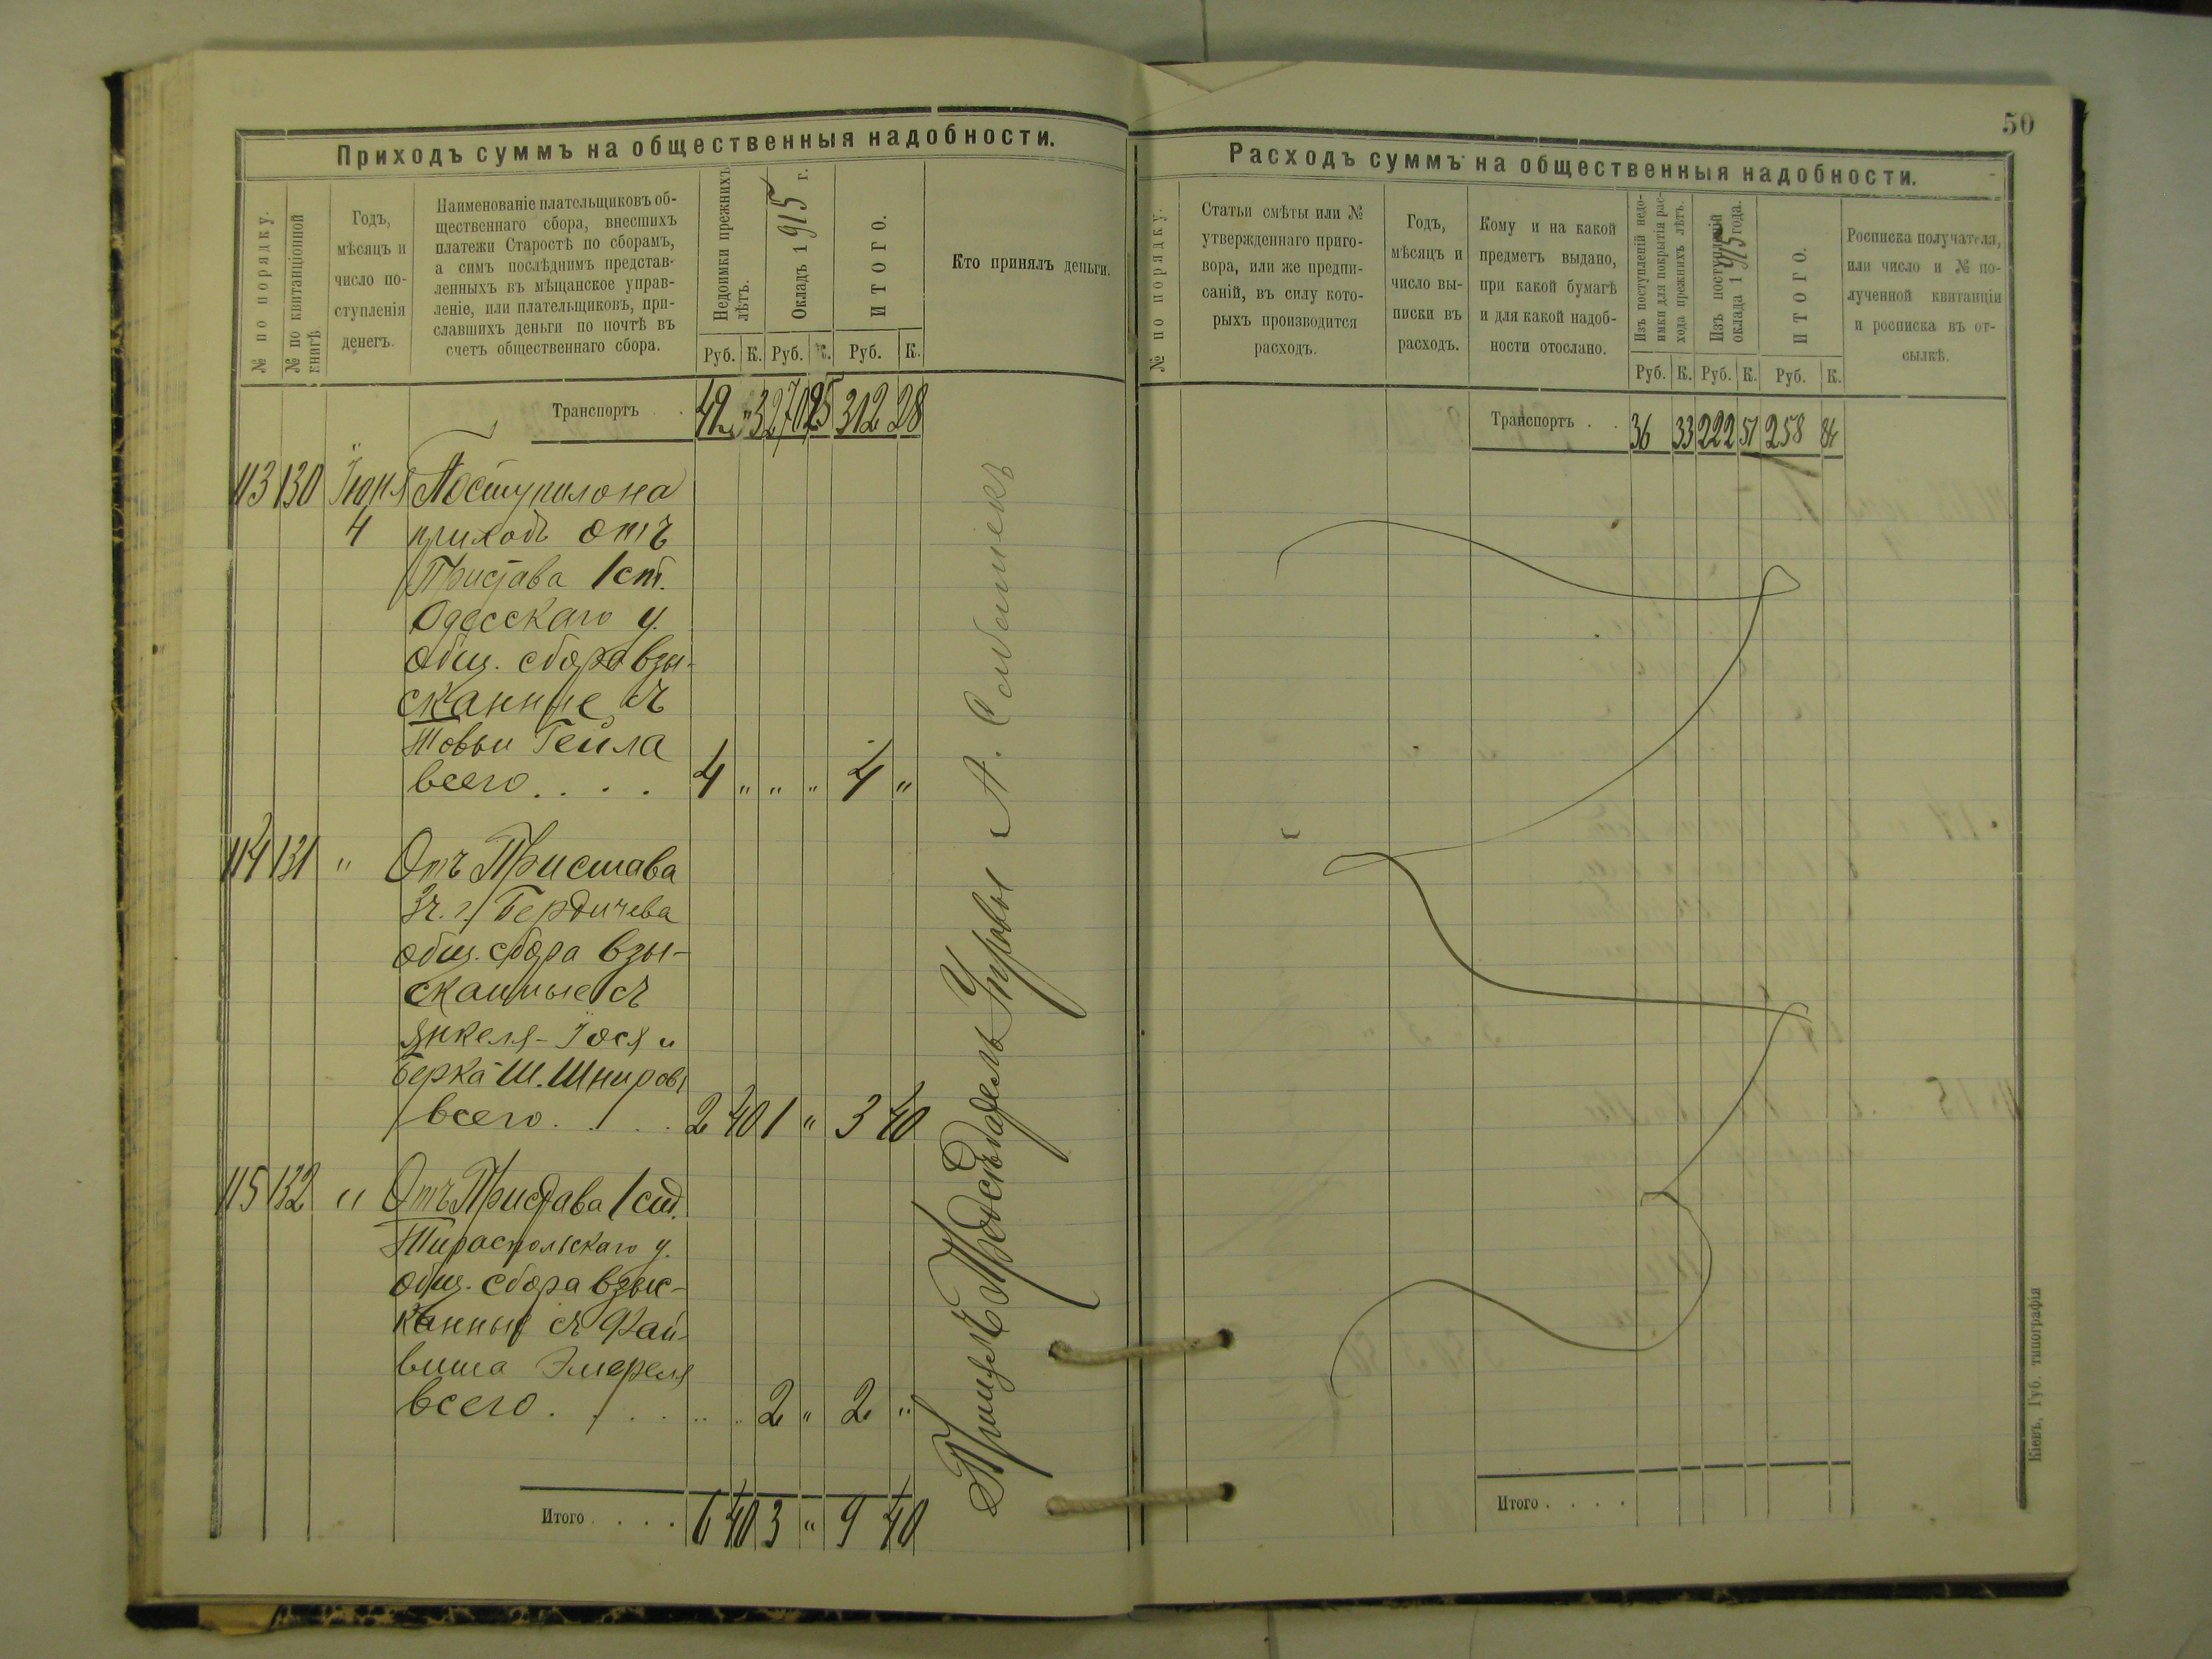 Приходъ суммъ на общественныя надобности.
№ по порядку.
№ по квитанціонной
книгѣ
Годъ,
мѣсяцъ и
число по-
ступленія
денегъ.
Наименованіе плательщиковъ об-
щественнаго сбора, внесшихъ
платежи Старостѣ по сборамъ,
а симъ послѣднимъ представ-
ленныхъ въ мѣщанское управ-
леніе, или плательщиковъ, при-
славшихъ деньги по почтѣ въ
счетъ общественнаго сбора.
Недоимки прежнихъ
лѣтъ.
Окладъ 1915 г.
ИТОГО.
Кто принялъ деньги.
Руб. К. Руб. К. Руб. К.
Транспортъ 42 3 270 25 312 28
113 130 Іюня Поступило на
4 приходъ отъ
Пристава 1 ст.
Одесскаго у.
общ. сбора взы-
сканные съ
Товьи Гейла
всего . . . . 4 " " " 4 "
114 131 " Отъ Пристава
3 ч. г. Бердичева
общ. сбора взы-
сканные съ
Янкеля-Іося и
Берка Ш. Шнировы
всего . . . 2 40 1 " 3 40
115 132 " Отъ Пристава 1 ст.
Тираспольскаго у.
общ. сбора взыс-
канные съ Фай-
виша
всего . . . . . . 2 " 2 "
Итого . . . . 6 40 3 " 9 40
Предсѣдатель Управы А.
50
Расходъ суммъ на общественныя надобности.
№ по порядку.
Статьи смѣты или №
утвержденнаго приго-
вора, или же предпи-
саній, въ силу кото-
рыхъ производится
расходъ.
Годъ,
мѣсяцъ и
число вы-
писки въ
расходъ.
Кому и на какой
предметъ выдано,
при какой бумагѣ
и для какой надоб-
ности отослано.
Изъ поступленій недо-
имки для покрытія рас-
хода прежнихъ лѣтъ.
Изъ поступленій
оклада 1915 года.
ИТОГО.
Росписка получателя,
или число и № по-
лученной квитанціи
и росписка въ от-
сылкѣ.
Руб. К. Руб. К. Руб. К.
Транспортъ . . 36 33 222 51 258 84
Итого . . . .
Кіевъ, Губ. типографія